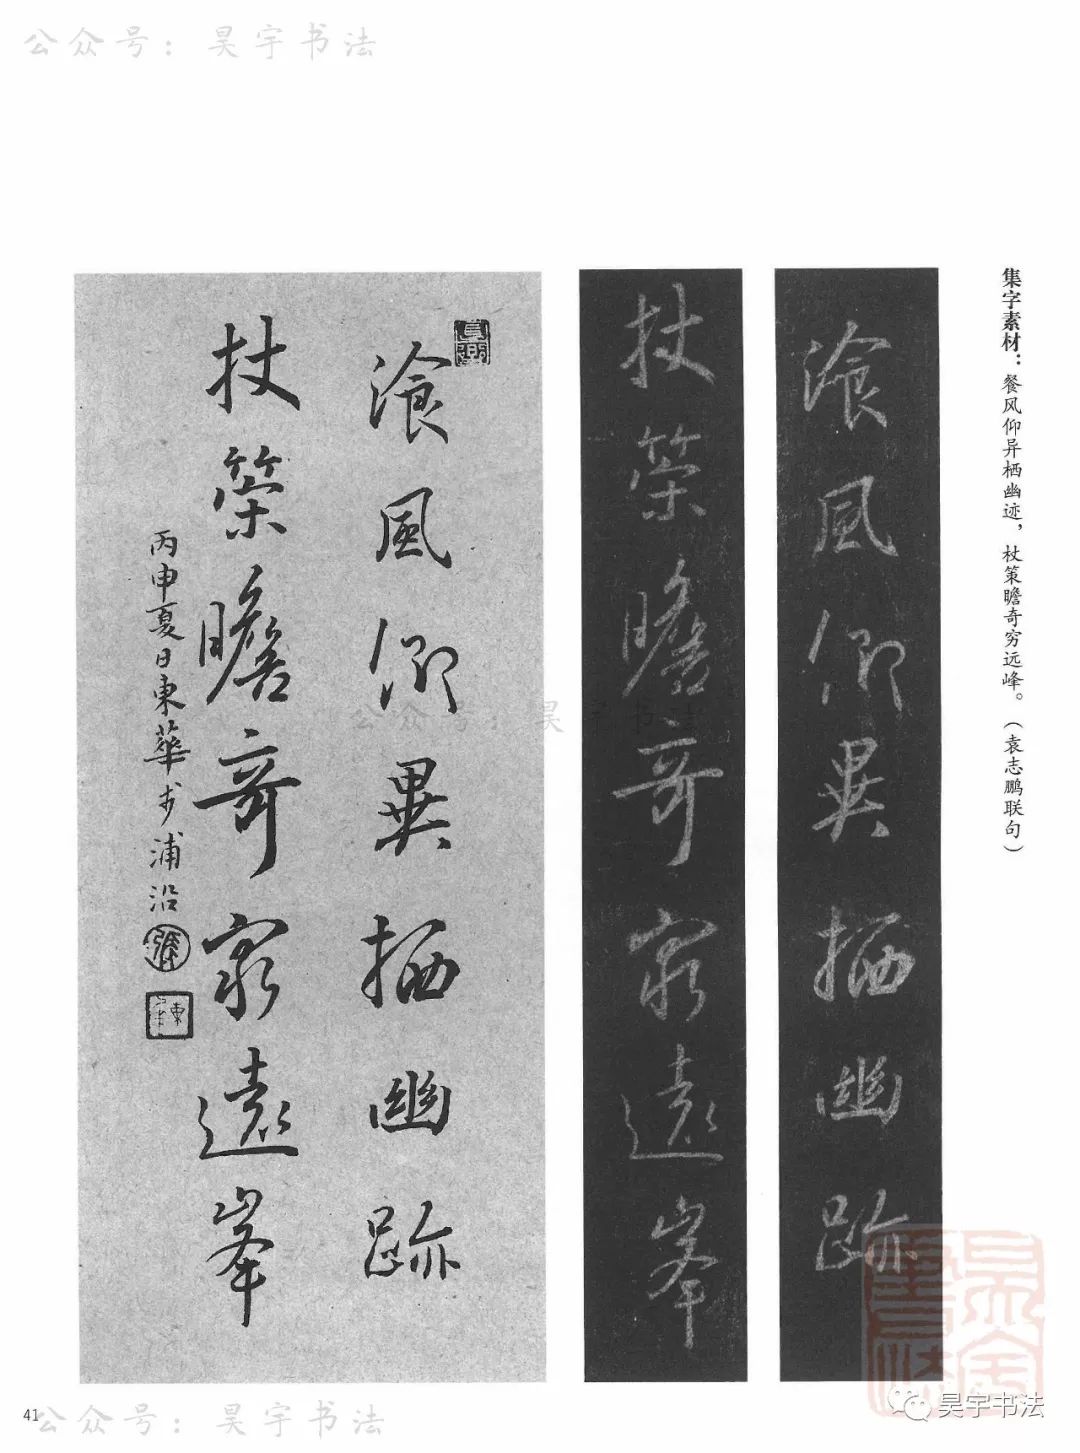 公众号：昊宇书法
集字素材：餐风仰异栖幽迹，杖策瞻奇穷远峰。（袁志鹏联句）
飡風仰異栖幽跡
杖策瞻奇穷遠峯
飡風仰異栖幽跡
杖策瞻奇穷遠峯
丙申夏日東華於浦沿
公众号：昊宇书法
昊宇书法
昊宇书法
41
公众号：昊宇书法